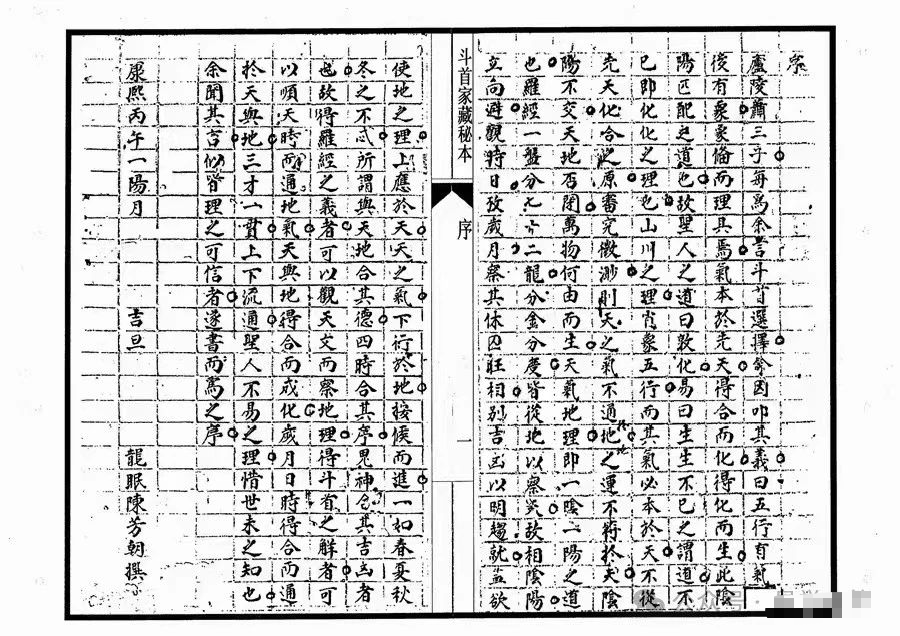 序
廬陵蕭三子每為余言斗首選擇余因叩其義曰五行有氣
後有象象倫而理具焉氣本於先天得合而化得化而生此陰
陽匹配之道也故聖人之道曰敦化易曰生生不已之謂道不
已即化化之理也山川之理肖象五行而其氣必本於天不從
先天化合之原番究微渺則天之氣不通地之運不符於天陰
陽不交天地否閉萬物何由而生天氣地理即一陰一陽之道
也羅經一盤分七十二龍分金分度皆從地以察災故相陰陽
立向避觀時日攷歲月察其休囚旺相別吉凶以明趨就盖欲
斗首家藏秘本
序
一
使地之理上應於天天之氣下行於地按候而進一如春夏秋
冬之不忒所謂與天地合其德四時合其序鬼神合其吉凶者
也故得羅經之義者可以觀天文而察地理得斗首之解者可
以順天時而通地氣天與地得合而成化歲月日時得合而通
於天與地三才一貫上下流通聖人不易之理惜世未之知也
余聞其言似皆理之可信者遂書而為之序
康熙丙午一陽月 吉旦 龍眠陳芳朝撰
公众号